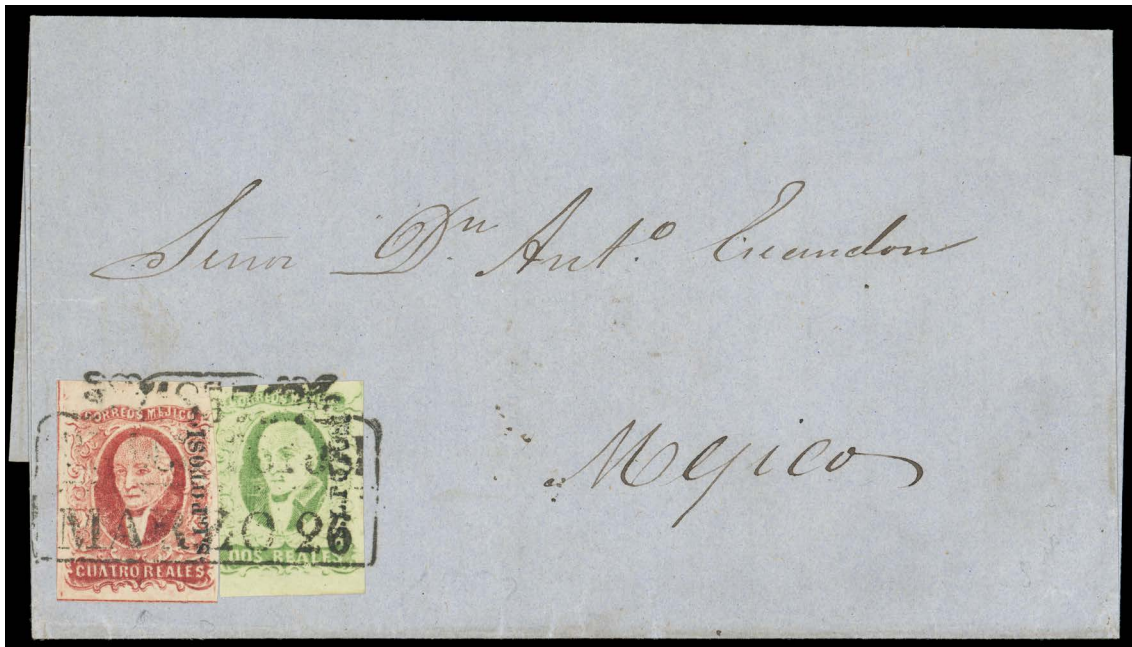 Señor Dn. Anto. Escandon
Mejico
CORREOS MEJICO
CUATRO REALES
CORREOS MEJICO
DOS REALES
MARZO 26